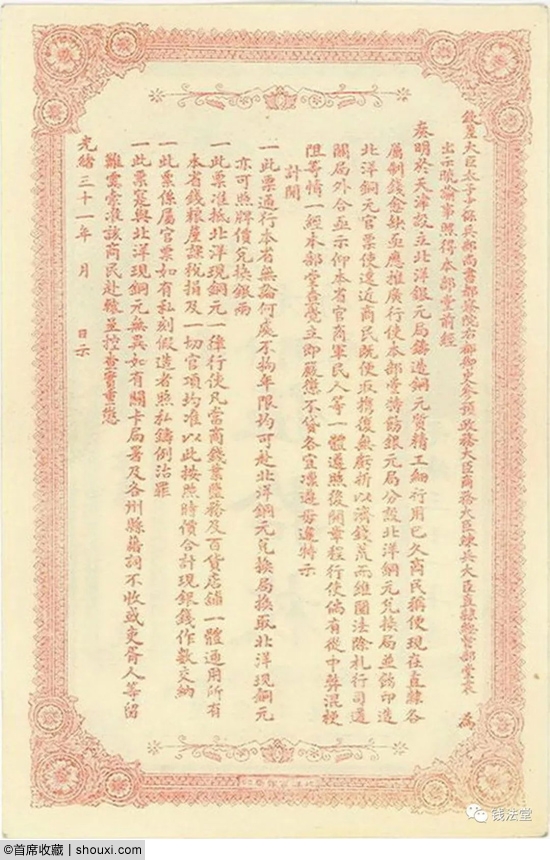 欽差大臣太子少保兵部尚書都察院右都御史參預政務大臣商務大臣練兵大臣直隸總督部堂袁 為
出示曉諭事照得本部堂前經
奏明於天津設立北洋銀元局鑄造銅元質精工細行用已久商民稱便現在直隸各
屬制錢愈缺亟應推廣行使本部堂特飭銀元局分設北洋銅元兌換局並飭印造
北洋銅元官票使遠近商民既便取攜復無虧折以濟錢荒而維圜法除札行司道
關局外合亟示仰本省官商軍民人等一體遵照後開章程行使倘有從中弊混梗
阻等情一經本部堂查覺立即嚴懲不貸各宜凜遵毋違特示
計開
一此票通行本省無論何處不拘年限均可赴北洋銅元兌換局換取北洋現銅元
亦可照牌價兌換銀兩
一此票准抵北洋現銅元一律行使凡當商錢業鹽務及百貨店舖一體通用所有
本省錢糧厘課稅捐及一切官項均准以此按照時價合計現銀錢作數交納
一此票係屬官票如有私刻假造者照私鑄例治罪
一此票寔與北洋現銅元無異如有關卡局署及各州縣藉詞不收或吏胥人等留
難需索准該商民赴轅呈控查實重懲
光緒三十一年 月 日示
钱法堂
©首席收藏 | shouxi.com